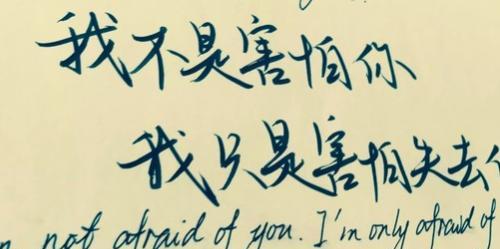 我不是害怕你
我只是害怕失去
not afraid of you. I'm only afraid of